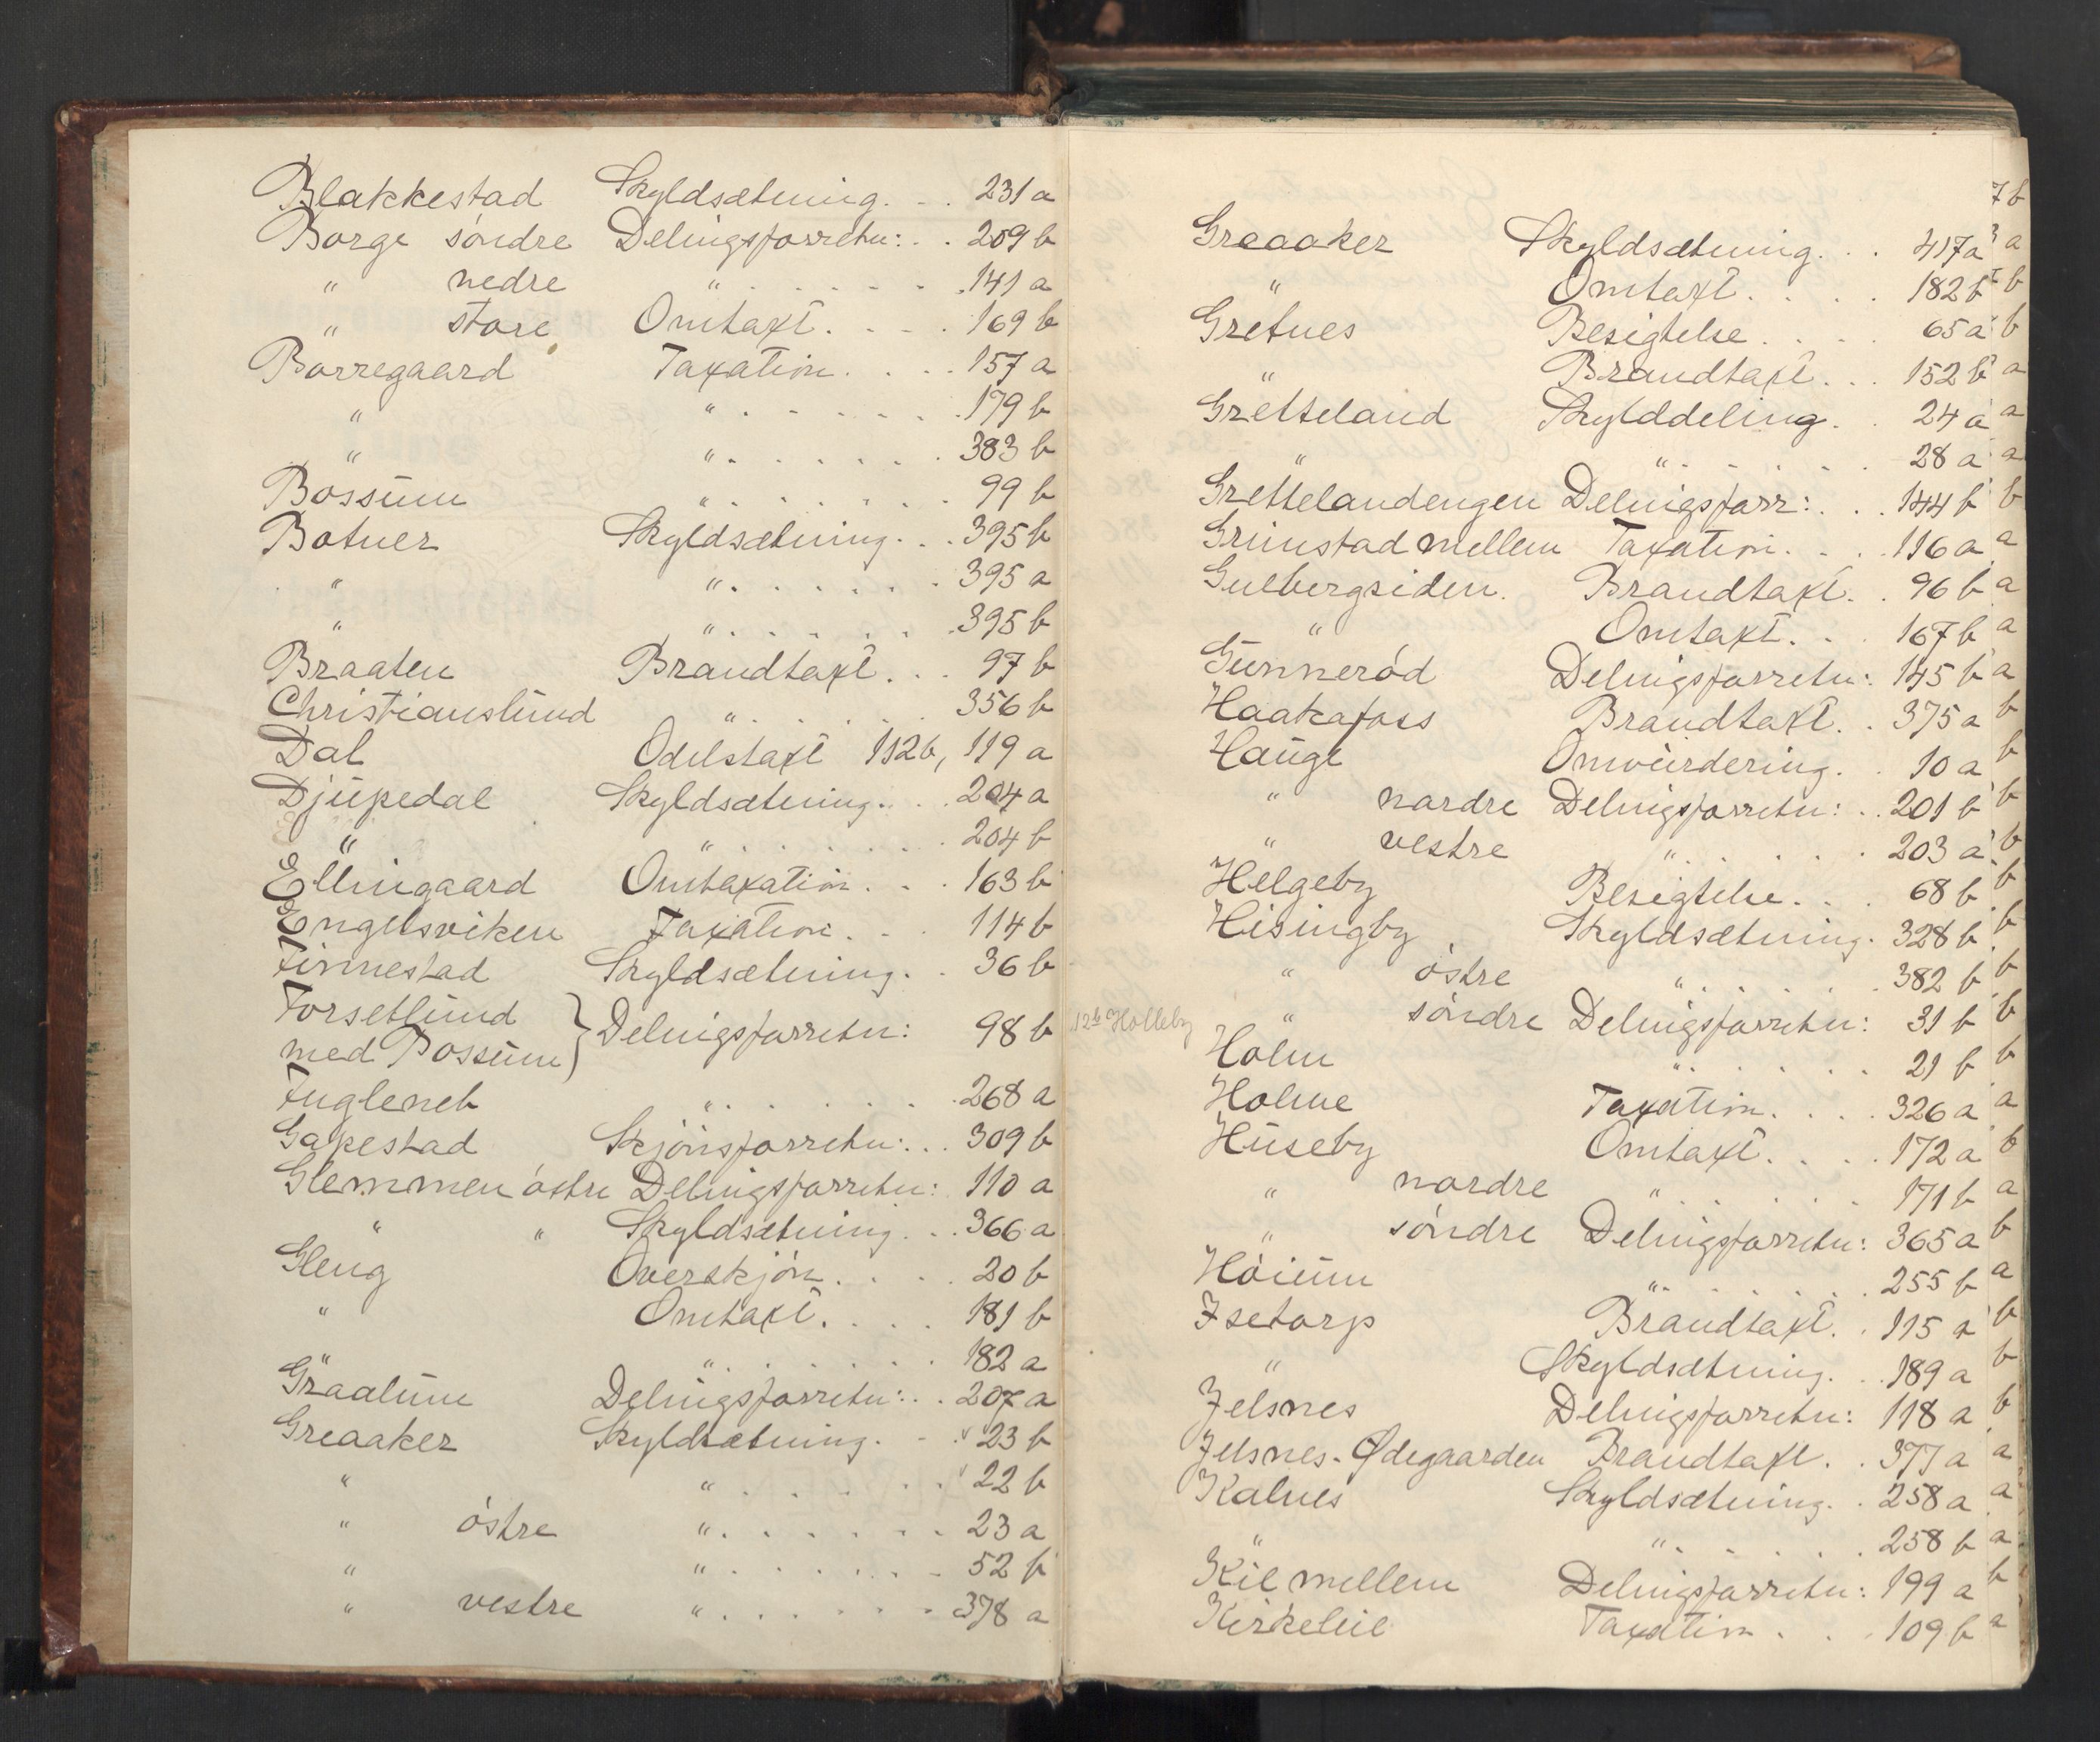 Blakkestad Skyldsætning. . . 231 a
Borge söndre Delingsforretn: . . 209 b
" nedre " . . . . . . 141 a
" store Omtaxt. . . . 169 b
Borregaard Taxation. . . . 157 a
" " . . . . . . 179 b
" " . . . . . . 383 b
Bossum " . . . . . . 99 b
Botner Skyldsætning. . . 395 b
" " . . . . . . 395 a
" " . . . . . . 395 b
Braaten Brandtaxt. . . 97 b
Christianslund " . . . . . 356 b
Dal Odelstaxt 112 b, 119 a
Djupedal Skyldsætning. . . 204 a
" " . . . . . . 204 b
Ellingaard Omtaxation. . . 163 b
Engelsviken Taxation. . . 114 b
Finnestad Skyldsætning. . 36 b
Torsetlund
med Bossum } Delingsforretn: 98 b
Fugleneb " . . . . . . 268 a
Gapestad Skjönsforretn: . . 309 b
Glemmen östre Delingsforretn: 110 a
" " Skyldsætning. . . 366 a
Gleng Overskjön. . . . 20 b
" Omtaxt. . . . 181 b
" " . . . . . . 182 a
Graalum Delingsforretn: . . 207 a
Greaaker Skyldsætning. . . 23 b
" " . . . . . . 22 b
" östre " . . . . . . 23 a
" " . . . . . . 52 b
" vestre " . . . . . . 378 a
7 b
Greaaker Skyldsætning. . . 417 a a
" Omtaxt. . . . 182 b b
Gretnes Besigtelse. . . . 65 a b
" Brandtaxt. . . 152 b a
Gretteland Skylddeling. . 24 a a
" " . . . . . . 28 a a
Grettelandengen Delingsforr: . . 144 b b
Grimstad mellem Taxation. . . 116 a a
Gulbergsiden. Brandtaxt. . 96 b a
" Omtaxt. . . 167 b a
Gunneröd Delingsforretn: 145 b a
Haakafoss Brandtaxt. . 375 a b
Hauge Omvurdering. . 10 a b
" nordre Delingsforretn: . . 201 b b
" vestre " . . . . . 203 a b
Helgeby Besigtelse. . . 68 b b
Hisingby Skyldsætning. 328 b b
" östre " . . . . . . 382 b b
" söndre Delingsforretn: 31 b b
12 b Holleby
Holm " . . . . . . 21 b b
Holme Taxation. . . . 326 a a
Huseby Omtaxt. . . . 172 a b
" nordre " . . . . . . 171 b a
" söndre Delingsforretn: 365 a b
Höium " . . . . . . 255 b a
Isetorp Brandtaxt. . 115 a b
" Skyldsætning. . . 189 a b
Jelsnes Delingsforretn: 118 a b
Jelsnes-Ødegaarden Brandtaxt. . 377 a a
Kalnes Skyldsætning. . 258 a a
" " . . . . . . 258 b a
Kil mellem Delingsforretn: 199 a b
Kirkelie Taxation. . . 109 b a